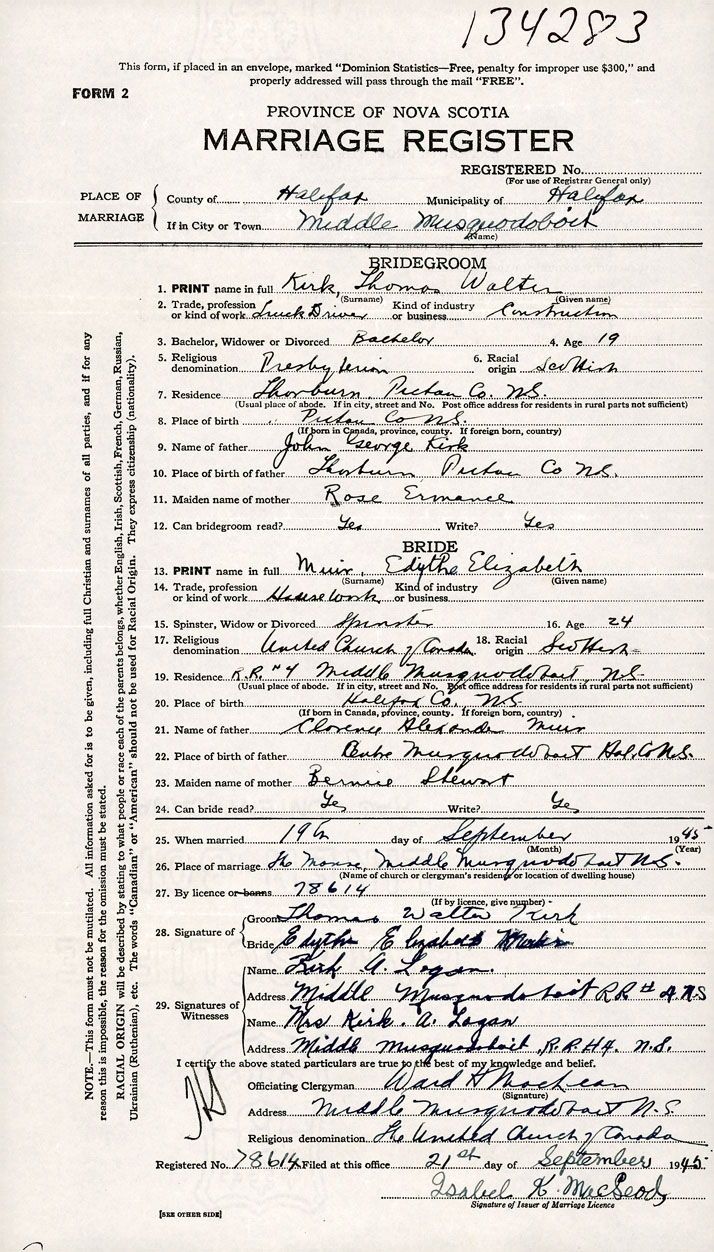 134283
This form, if placed in an envelope, marked "Dominion Statistics—Free, penalty for improper use $300," and
properly addressed will pass through the mail "FREE".
FORM 2
PROVINCE OF NOVA SCOTIA
MARRIAGE REGISTER
REGISTERED No.
(For use of Registrar General only)
PLACE OF MARRIAGE
County of Halifax Municipality of Halifax
If in City or Town Middle Musquodoboit
(Name)
BRIDEGROOM
1. PRINT name in full Kirk, Thomas Walter
(Surname) (Given name)
2. Trade, profession or kind of work Truck Driver Kind of industry or business Construction
3. Bachelor, Widower or Divorced Bachelor 4. Age 19
5. Religious denomination Presbyterian 6. Racial origin Scottish
7. Residence Thorburn, Pictou Co. N.S.
(Usual place of abode. If in city, street and No. Post office address for residents in rural parts not sufficient)
8. Place of birth Pictou Co N.S.
(If born in Canada, province, county. If foreign born, country)
9. Name of father John George Kirk
10. Place of birth of father Thorburn Pictou Co N.S.
11. Maiden name of mother Rose Ermance
12. Can bridegroom read? Yes Write? Yes
BRIDE
13. PRINT name in full Muir, Edythe Elizabeth
(Surname) (Given name)
14. Trade, profession or kind of work Housework Kind of industry or business
15. Spinster, Widow or Divorced Spinster 16. Age 24
17. Religious denomination United Church of Canada 18. Racial origin Scottish
19. Residence R.R. #4 Middle Musquodoboit, N.S.
(Usual place of abode. If in city, street and No. Post office address for residents in rural parts not sufficient)
20. Place of birth Halifax Co. N.S.
(If born in Canada, province, county. If foreign born, country)
21. Name of father Clarence Alexander Muir
22. Place of birth of father Centre Musquodoboit Hal. Co N.S.
23. Maiden name of mother Bernice Stewart
24. Can bride read? Yes Write? Yes
25. When married 19th day of September 1945
(Month) (Year)
26. Place of marriage The Manse, Middle Musquodoboit N.S.
(Name of church or clergyman's residence or location of dwelling house)
27. By licence or banns 78614
(If by licence, give number)
28. Signature of
Groom Thomas Walter Kirk
Bride Edythe Elizabeth Muir
29. Signatures of Witnesses
Name Kirk A. Logan.
Address Middle Musquodoboit RR # 4 N.S
Name Mrs Kirk. A. Logan
Address Middle Musquodoboit, R.R. #4. N.S.
I certify the above stated particulars are true to the best of my knowledge and belief.
Officiating Clergyman Ward H MacLean
(Signature)
Address Middle Musquodoboit N.S.
Religious denomination The United Church of Canada
Registered No. 78614 Filed at this office 21st day of September 1945
Isabel K. MacLeod
Signature of Issuer of Marriage Licence
[SEE OTHER SIDE]
NOTE.—This form must not be mutilated. All information asked for is to be given, including full Christian and surnames of all parties, and if for any
reason this is impossible, the reason for the omission must be stated.
RACIAL ORIGIN will be described by stating to what people or race each of the parents belongs, whether English, Irish, Scottish, French, German, Russian,
Ukrainian (Ruthenian), etc. The words "Canadian" or "American" should not be used for Racial Origin. They express citizenship (nationality).